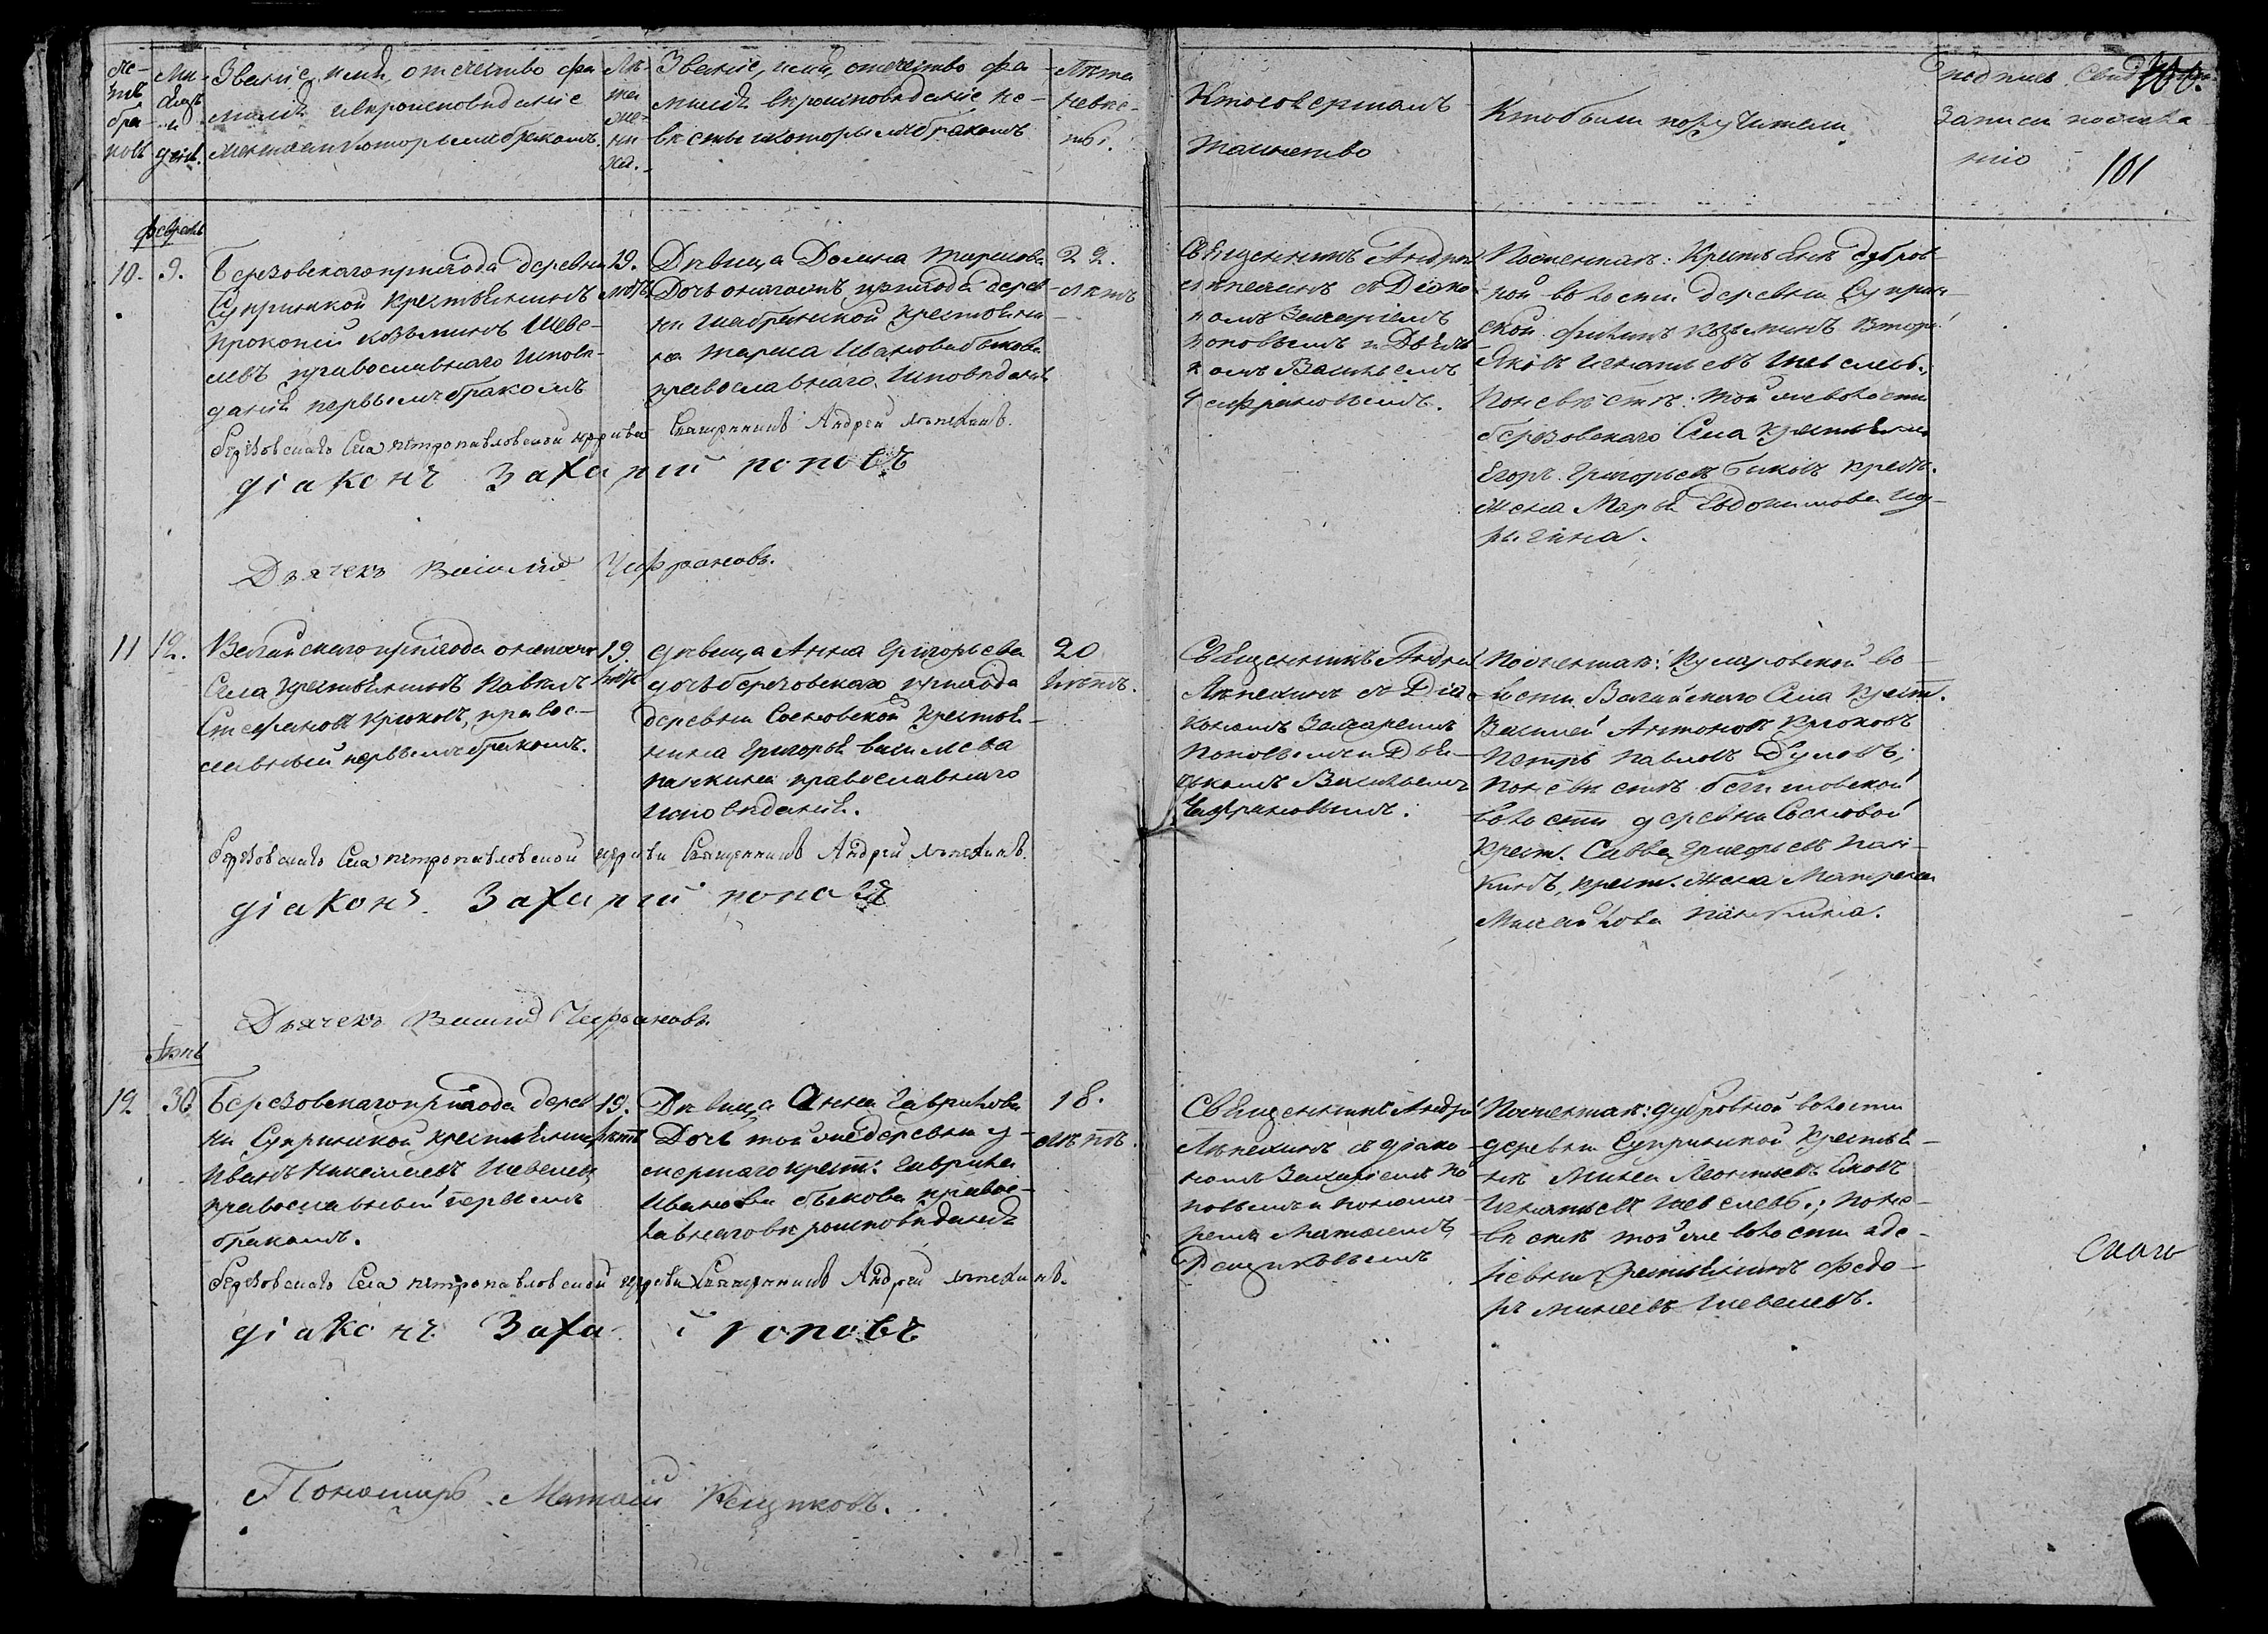 Званіе, имя, отчество фа-
милія и вѣроисповѣданіе
Лѣ-
та
же-
ни
ха.
Званіе, имя, отчество фа-
милія вѣроисповѣданіе не-
вѣсты и которымъ бракомъ
Лѣта
невѣс-
ты.
Кто совершалъ
таинство
Кто были поручители
подпись
записи по жела
нію
100.
101
февраль
10.
9.
Березовскаго прихода деревни
Супринской крестьянинъ
Прокопій Козьминъ Шеве-
левъ православнаго исповѣ-
данія первымъ бракомъ
19.
лѣтъ
Дѣвица Домна Тарасова
Дочь онагожъ прихода дерев-
ни Шабринской крестьяни
на Тараса Иванова Быкова
православнаго исповѣданія
22.
лѣтъ
Священникъ Андрей
Лѣпехинъ съ Діако-
номъ Захаріемъ
Поповымъ и Дьяч
комъ Васильемъ
Чафрановымъ.
По женихѣ: Крестьяне Дубров-
ной волости деревни Суприн-
ской Филипъ Козьминъ второй
Яковъ Игнатьевъ Шевелевы;
По невѣстѣ: той же волости
Березовскаго Села крестьянинъ
Егоръ Григорьевъ Быковъ крест.
жена Марья Евдокимова
Березовскаго Села петропавловской церкви Священникъ Андрей Лѣпехинъ.
діаконъ Захарий поповъ
Дьячекъ Василий Чафрановъ.
11
12.
Вагайскаго прихода онагожъ
Села крестьянинъ Павелъ
Стефановъ Крюковъ, правос-
лавный первымъ бракомъ.
19.
лѣтъ
дѣвица Анна Григорьева
дочь березовскаго прихода
деревни Сосновской крестья-
нина Григорья Васильева
Панкина православнаго
исповѣданія.
20
лѣтъ.
Священникъ Андрей
Лѣпехинъ съ Діа
кономъ Захаріемъ
Поповымъ и Дья-
чкомъ Васильемъ
Чафрановымъ.
По женихѣ: Кумаровской во-
лости Вагайскаго Села крест.
Василей Антоновъ Крюковъ
Петръ Павловъ Дуловъ;
По невѣстѣ
волости деревни Сосновой
крест. Савва Григорьевъ Пан-
кинъ, крест. жена Матрена
Михайлова Панькина.
Березовскаго Села петропавловской церкви Священникъ Андрей Лѣпехинъ.
діаконъ Захарий поповъ
Дьячекъ Василий Чафрановъ.
12
30
Березовскаго прихода дерев
ни Супринской крестьянинъ
Иванъ Никифоровъ Шевелевъ
православный первымъ
бракомъ.
19.
лѣтъ
Дѣвица Анна Гаврилова
Дочь той же деревни у-
мершаго крест: Гаврила
Иванова Быкова правос-
лавнаго вѣроисповѣданія
18.
лѣтъ.
Священникъ Андрей
Лѣпехинъ съ діако-
номъ Захаріемъ По
повымъ и понома-
ремъ Матвіемъ
Рещиковымъ
По женихѣ: дубровной волости
деревни Супринской крестья-
не Минеи Леонтьевъ Яковъ
Игнатьевъ Шевелевы; по не-
вѣстѣ той же волости и де-
ревни крестьянинъ Федо-
ръ Минеевъ Шевелевъ.
Березовскаго Села петропавловской церкви Священникъ Андрей Лѣпехинъ.
діаконъ Захарий поповъ
Пономарь Матвій Рещиковъ.